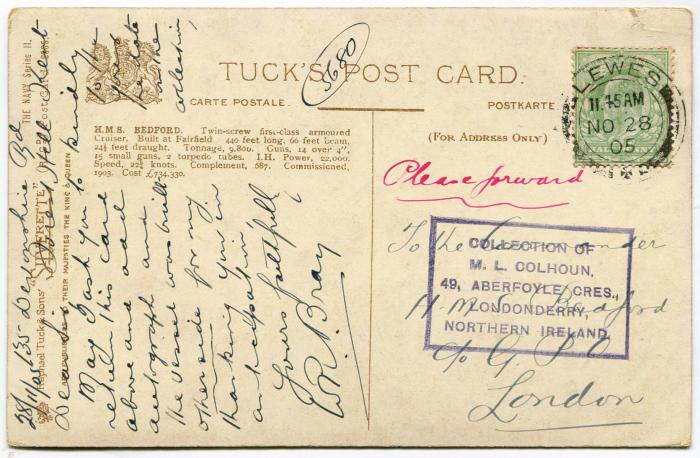 TUCK'S POST CARD.
CARTE POSTALE.
POSTKARTE.
(FOR ADDRESS ONLY)
5680
LEWES
11.45AM
NO 28
05
H.M.S. BEDFORD. Twin-screw first-class armoured
Cruiser. Built at Fairfield 440 feet long, 66 feet beam,
24½ feet draught. Tonnage, 9,800. Guns, 14 over 4",
15 small guns, 2 torpedo tubes. I.H. Power, 22,000.
Speed, 22¾ knots. Complement, 687. Commissioned,
1903. Cost £734,330.
Raphael Tuck & Sons' "SILVERETTE"
THE NAVY. Series II.
THEIR MAJESTIES THE KING & QUEEN
28/11/05 Devonshire Rd
Forest Hill
Dear Sir
May I ask you to kindly
return this card
above and
autograph and
the vessel was built
other side for my
thanking you in
anticipation
Yours faithfully
W.R. Bray
to the
Please forward
To the Commander
H.M.S. Bedford
c/o G.P.O.
London
COLLECTION OF
M. L. COLHOUN,
49, ABERFOYLE CRES.,
LONDONDERRY,
NORTHERN IRELAND